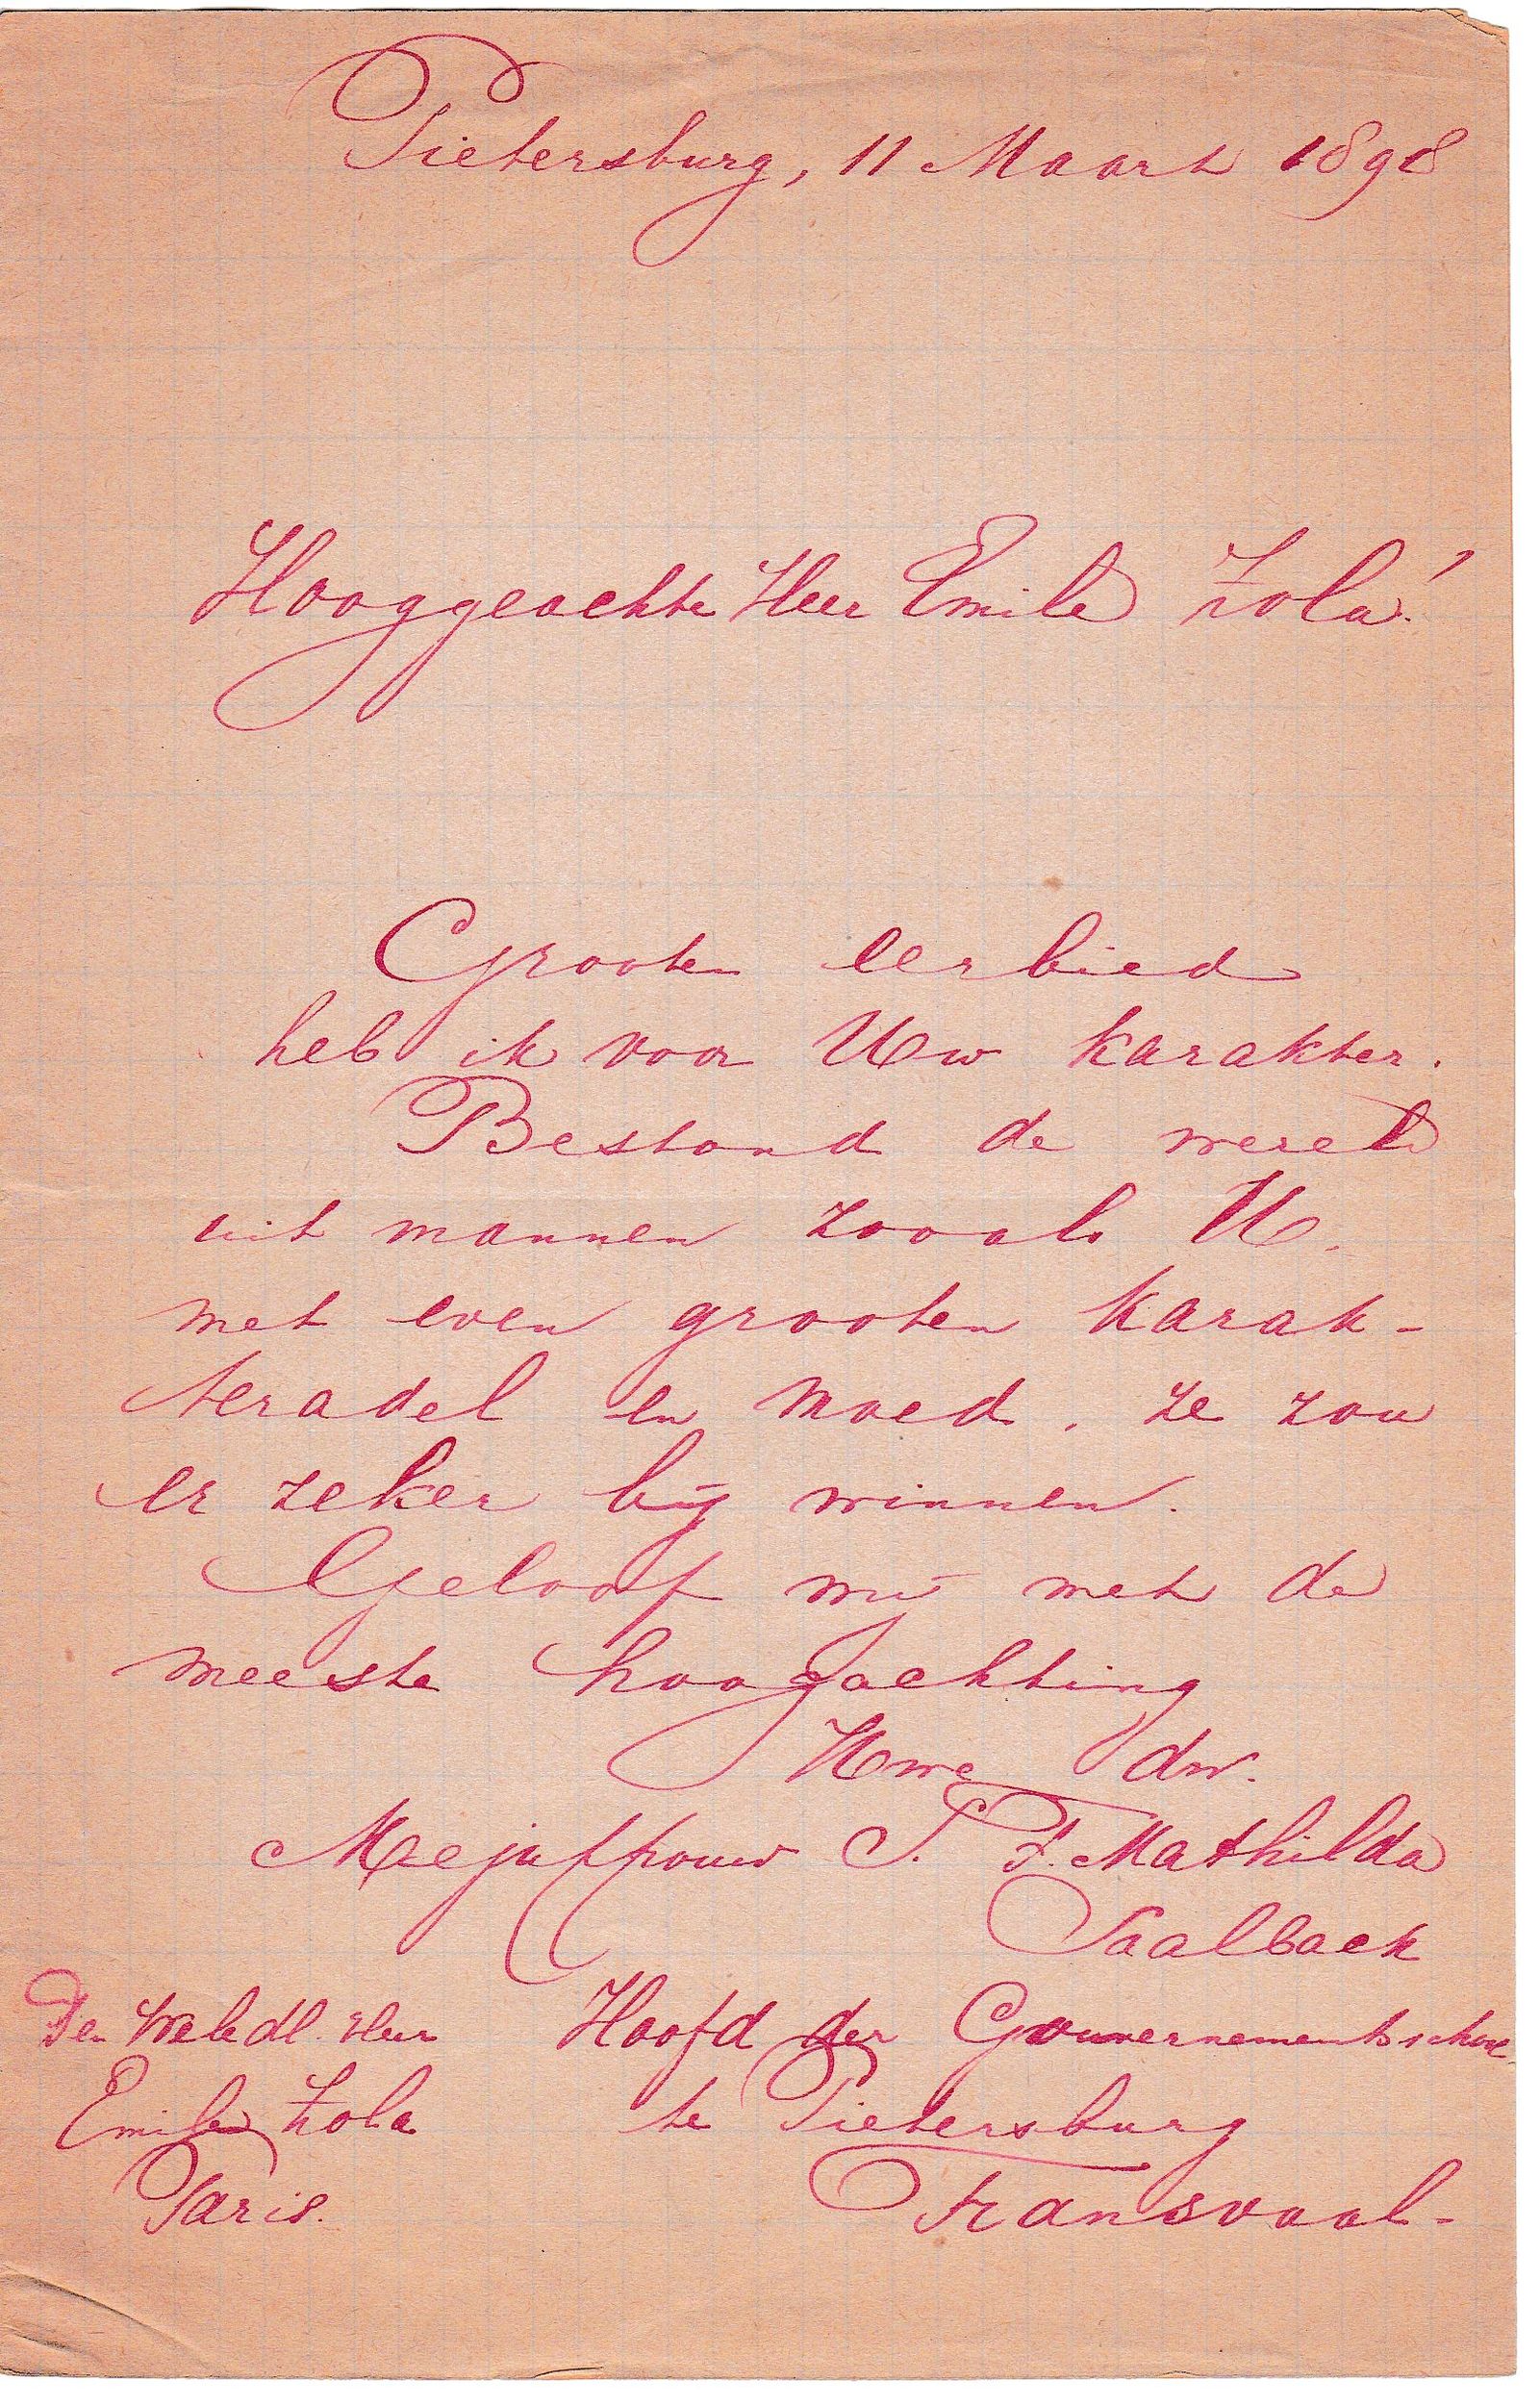 Pietersburg, 11 Maart 1898
Hooggeachte Heer Emile Zola!
Grooten eerbied
heb ik voor Uw karakter.
Bestond de wereld
uit mannen zooals U.
met even grooten karak-
teradel en moed. ze zou
er zeker bij winnen.
Geloof mij met de
meeste hoogachting
Uwe dw.
Mejuffrouw S. F. Mathilda
Saalback
Hoofd der Gouvernementsschool
te Pietersburg
Transvaal-
Den Weledl. Heer
Emile Zola
Paris.